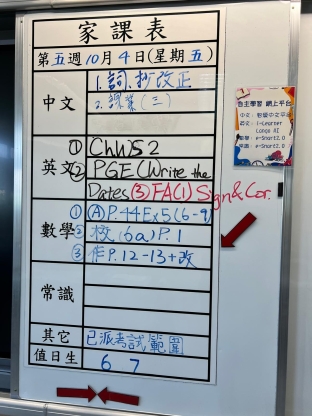 家課表
第五週10月4日(星期五)
中文
1.詞、抄改正
2.課業(三)
英文
① ChWS2
② PGE(Write the
Dates ③FA(1) Sign & Cor.
數學
① Ⓐ P.44 Ex5(6-9)
② 校(6a) P.1
③ 作P.12-13+改
常識
其它
已派考試範圍
值日生
6 7
自主學習 網上平台
中文:
英文: i-Learner
Lango AI
數學: e-Smart2.0
常識: e-Smart2.0